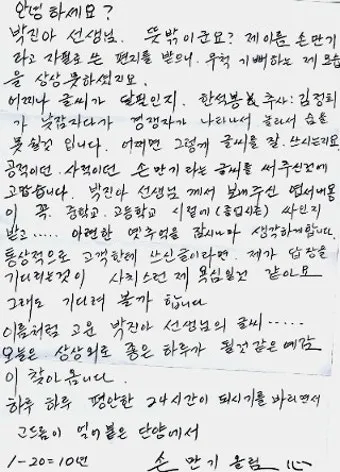 안녕하세요?
박진아 선생님. 뜻밖이군요? 제이름 손만기
라고 자필로 쓴 편지를 받으니. 무척 기뻐하는 제 모습
을 상상못하셨지요.
어찌나 글씨가 달필인지. 한석봉& 추사:김정희
가 낮잠자다가 경쟁자가 나타나서 놀라서 숨을
못쉴것 입니다. 어쩌면 그렇게 글씨를 잘.쓰시는지요.
공적이던. 사적이던 손만기라는 글씨를 써주신것에
고맙습니다. 박진아 선생님 께서 보내주신 엽서내용
이 꼭. 중학교. 고등학교 시절에 (졸업시즌) 싸인지
받고..... 아련한 옛추억을 잠시나마 생각하게합니다.
통상적으로 고객한테 쓰신글이라면. 제가 답장을
기다리는것이 사치스런 제 욕심일것 같아요
그래도 기다려 볼까 합니다
이름처럼 고운 박진아 선생님의 글씨......
오늘은 상상외로 좋은 하루가 될것같은 예감
이 찾아옵니다.
하루 하루 평안한 24시간이 되시기를 바라면서
고드름이 얼어붙은 단양에서
1-20=10년 손만기올림